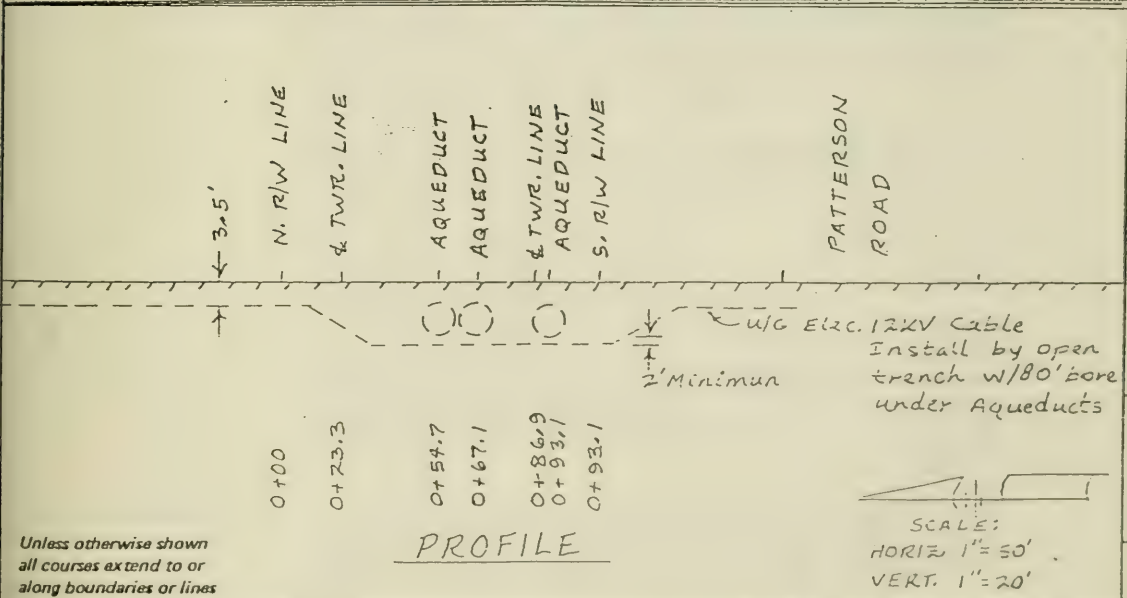 3.5'
N. R/W LINE
℄ TWR. LINE
AQUEDUCT
AQUEDUCT
℄ TWR. LINE
AQUEDUCT
S. R/W LINE
PATTERSON
ROAD
U/G Elec. 12KV Cable
Install by open
trench w/80' bore
under Aqueducts
2' Minimun
0+00
0+23.3
0+54.7
0+67.1
0+86.9
0+93.1
0+93.1
PROFILE
Unless otherwise shown
all courses extend to or
along boundaries or lines
SCALE:
HORIZ 1"=50'
VERT. 1"=20'